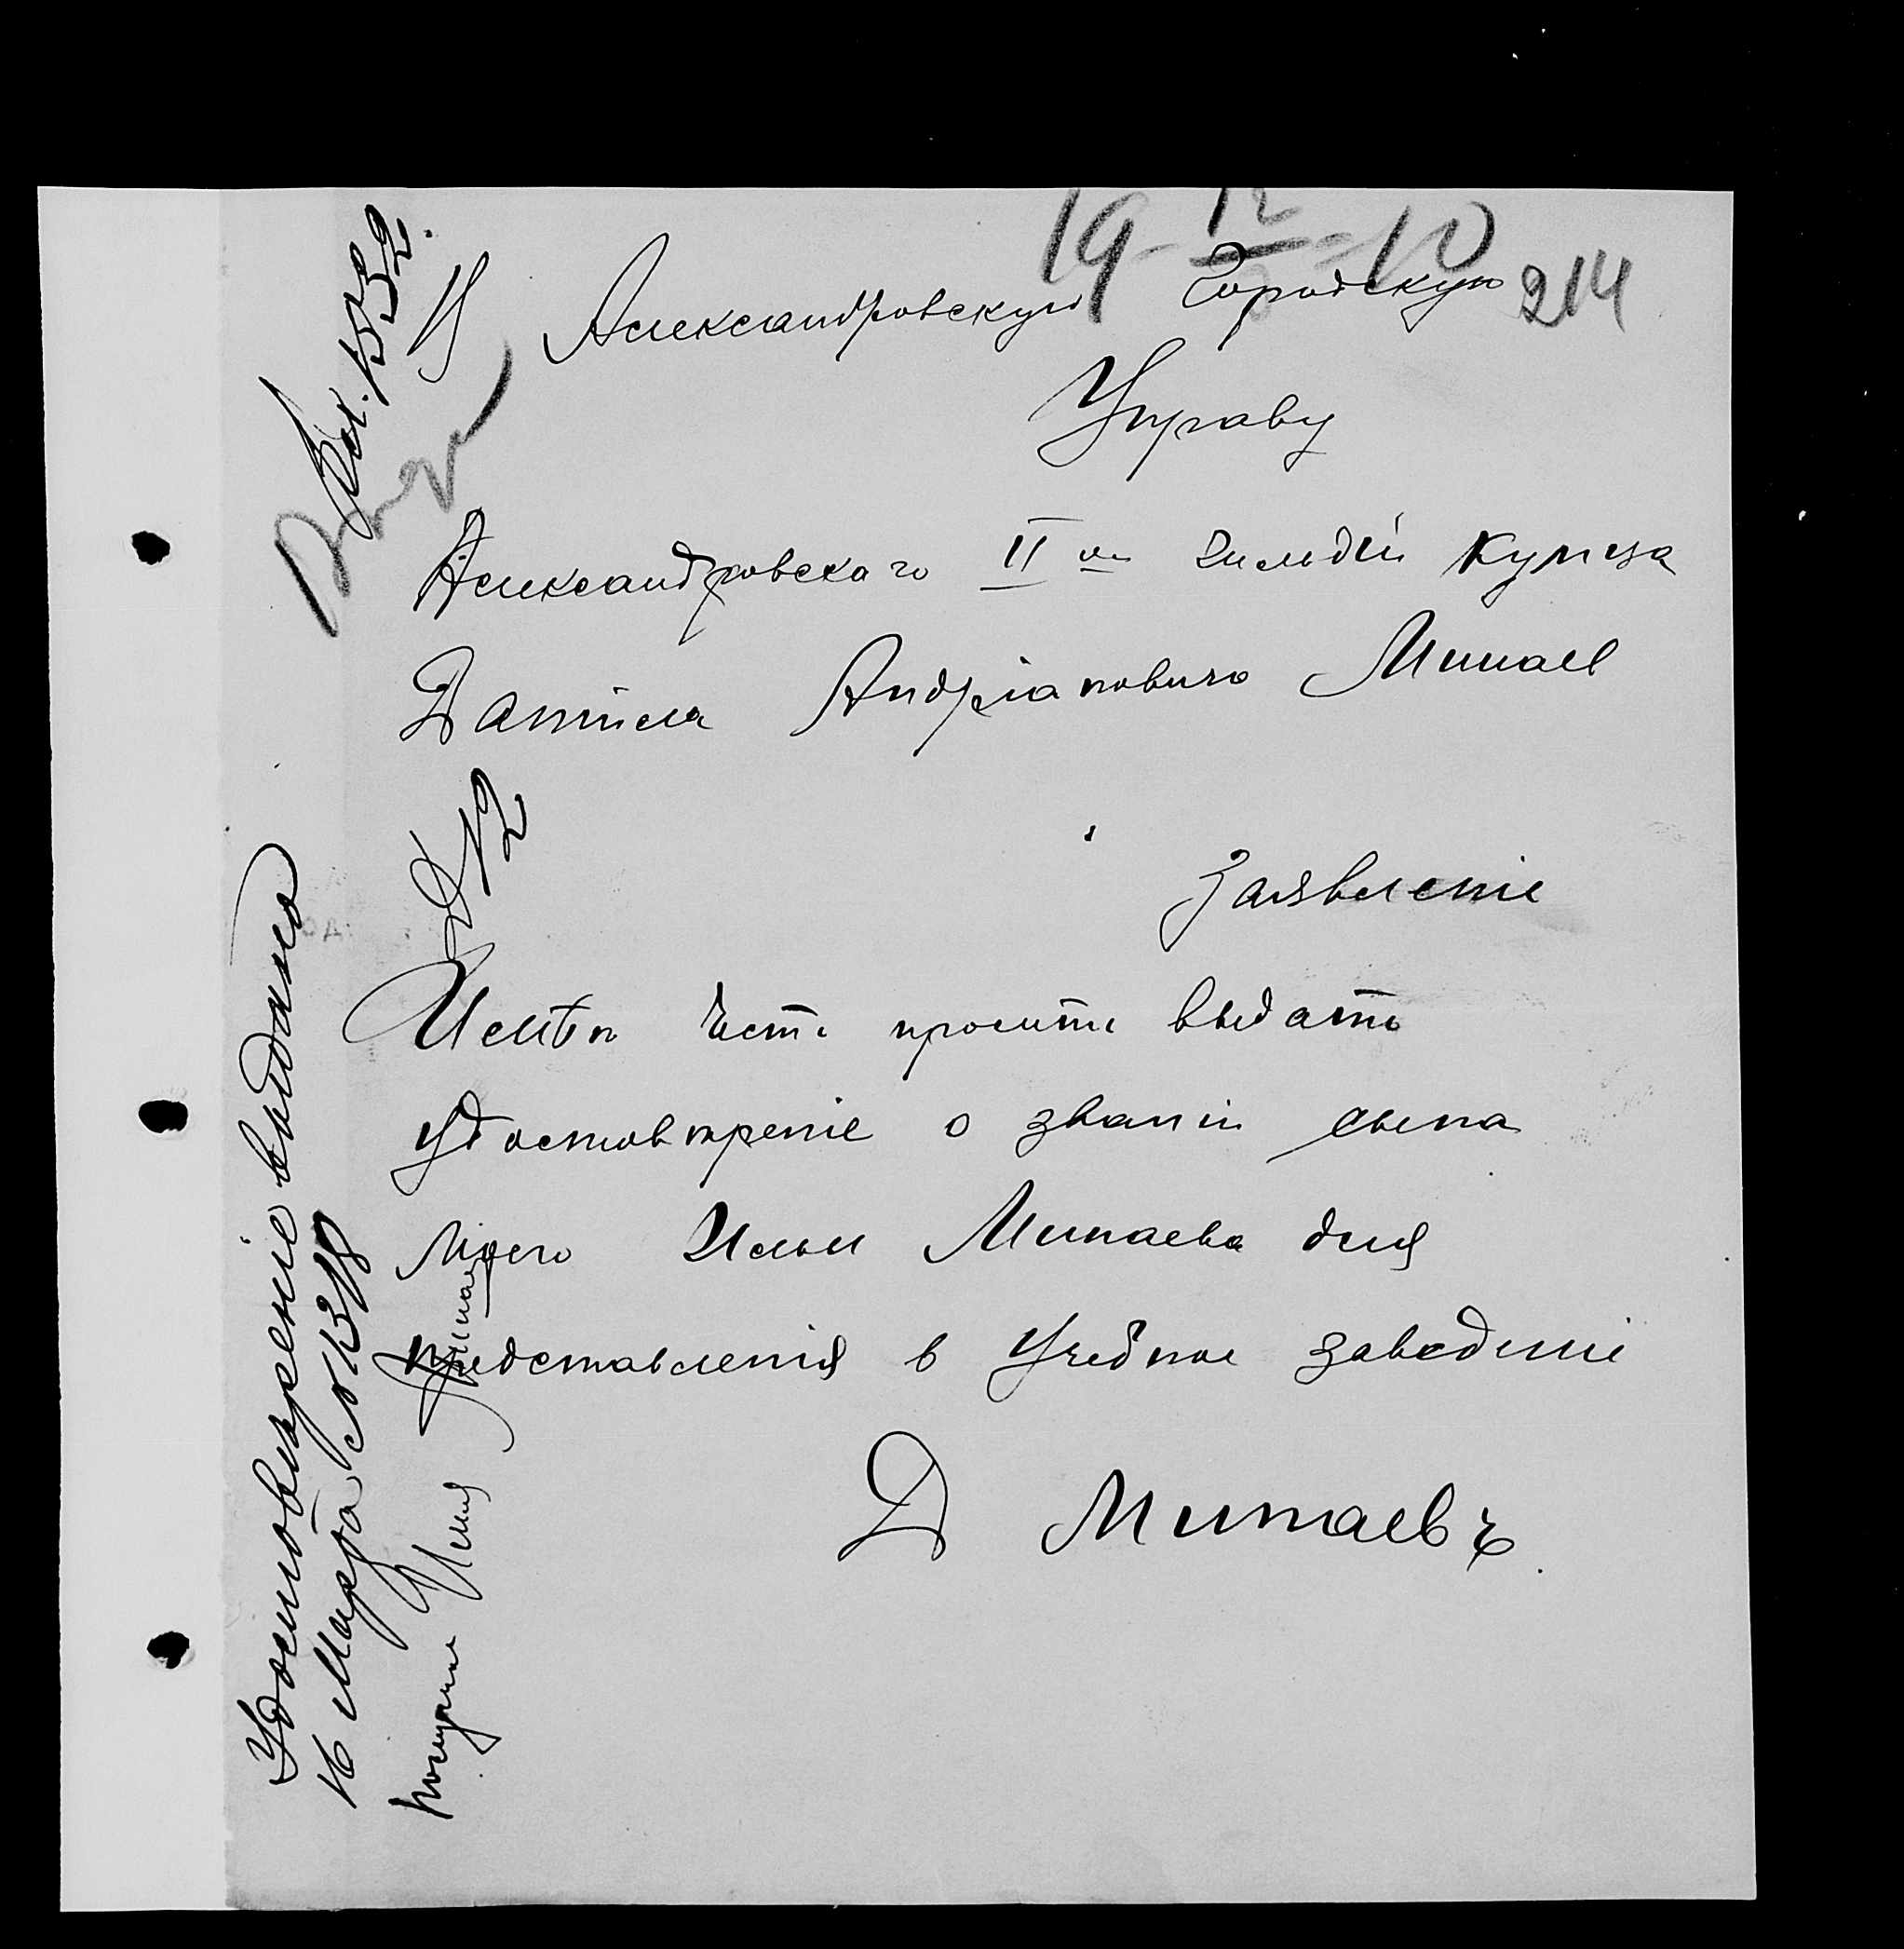 19-12-10
214
В Александровскую Городскую
Управу
Александровскаго II ои Гильдіи Купца
Даніила Андріановича Минаев
Заявленіе
Имѣю Честь просить выдать
удостовѣреніе о званіи сына
Моего Ильи Минаева для
представленія в Учебное Заведеніе
Д Минаевъ
Удостовѣреніе выдано
16 Марта № 1318
получил Илья Минаев